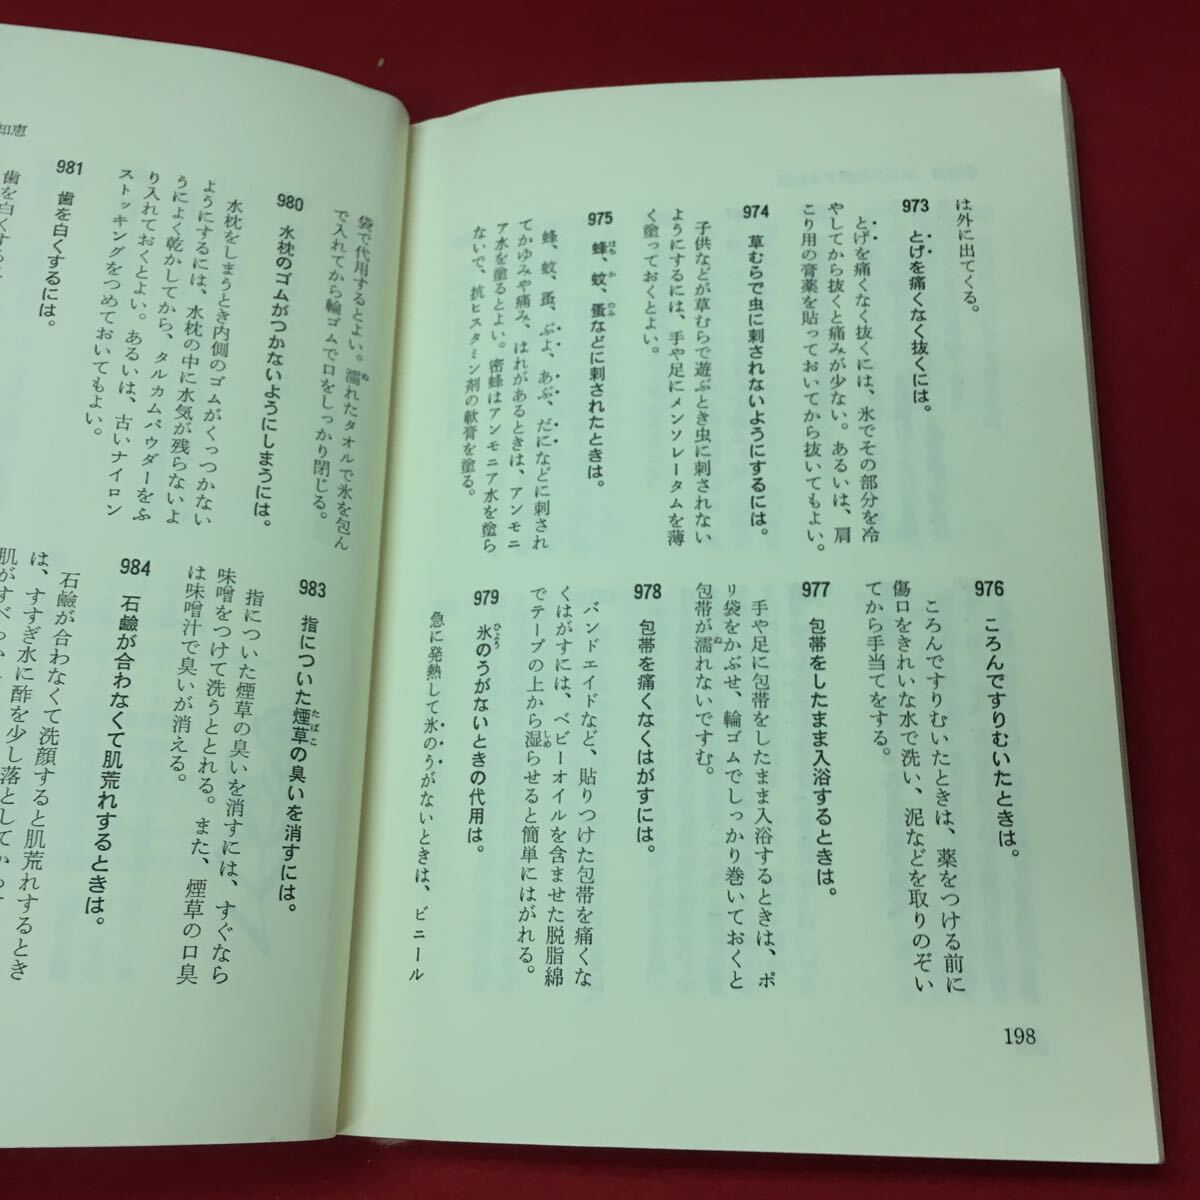 は外に出てくる。
973 とげを痛くなく抜くには。
とげを痛くなく抜くには、氷でその部分を冷
やしてから抜くと痛みが少ない。あるいは、肩
こり用の膏薬を貼っておいてから抜いてもよい。
974 草むらで虫に刺されないようにするには。
子供などが草むらで遊ぶとき虫に刺されない
ようにするには、手や足にメンソレータムを薄
く塗っておくとよい。
975 蜂、蚊、蚤などに刺されたときは。
蜂、蚊、蚤、ぶよ、あぶ、だになどに刺され
てかゆみや痛み、はれがあるときは、アンモニ
ア水を塗るとよい。密蜂はアンモニア水を塗ら
ないで、抗ヒスタミン剤の軟膏を塗る。
976 ころんですりむいたときは。
ころんですりむいたときは、薬をつける前に
傷口をきれいな水で洗い、泥などを取りのぞい
てから手当てをする。
977 包帯をしたまま入浴するときは。
手や足に包帯をしたまま入浴するときは、ポ
リ袋をかぶせ、輪ゴムでしっかり巻いておくと
包帯が濡れないですむ。
978 包帯を痛くなくはがすには。
バンドエイドなど、貼りつけた包帯を痛くな
くはがすには、ベビーオイルを含ませた脱脂綿
でテープの上から湿らせると簡単にはがれる。
979 氷のうがないときの代用は。
急に発熱して氷のうがないときは、ビニール
198
知恵
袋で代用するとよい。濡れたタオルで氷を包ん
で入れてから輪ゴムで口をしっかり閉じる。
980 水枕のゴムがつかないようにしまうには。
水枕をしまうとき内側のゴムがくっつかない
ようにするには、水枕の中に水気が残らないよ
うによく乾かしてから、タルカムパウダーをふ
り入れておくとよい。あるいは、古いナイロン
ストッキングをつめておいてもよい。
981 歯を白くするには。
歯を白くする
983 指についた煙草の臭いを消すには。
指についた煙草の臭いを消すには、すぐなら
味噌をつけて洗うととれる。また、煙草の口臭
は味噌汁で臭いが消える。
984 石鹼が合わなくて肌荒れするときは。
石鹼が合わなくて洗顔すると肌荒れするとき
は、すすぎ水に酢を少し落として
肌がすべ